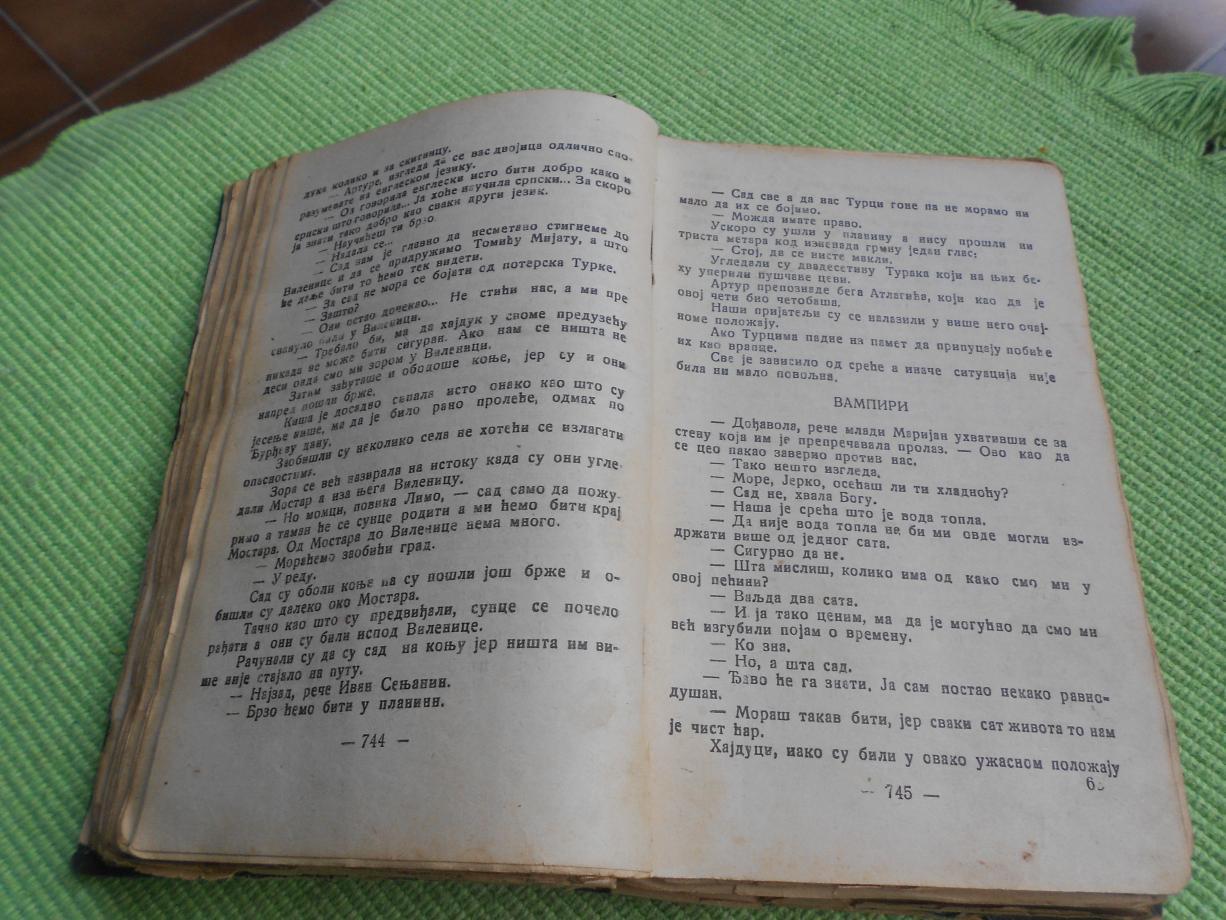 дука колико и за скитницу.
— Артуре, изгледа да се вас двојица одлично спо-
разумевате на енглеском језику.
— Од говорила енглески исто бити добро како и
српски што говорила... Ја хоће научила српски... За скоро
ја знати тако добро као сваки други језик.
— Научићеш ти брзо.
— Надала се...
— Сад нам је главно да несметано стигнемо до
Виленице и да се придружимо Томићу Мијату, а што
ће даље бити то ћемо тек видети.
— За сад не мора се бојати од потерска Турке.
— Зашто?
— Они остао дочекао... Не стићи нас, а ми пре
свануло била у Виленици.
— Требало би, ма да хајдук у своме предузећу
никада не може бити сигуран. Ако нам се ништа не
деси онда смо ми зором у Виленици.
Затим заћуташе и ободоше коње, јер су и они
напред пошли брже.
Киша је досадно сипала исто онако као што су
јесење кише, ма да је било рано пролеће, одмах по
Ђурђеву дану.
Заобишли су неколико села не хотећи се излагати
опасностима.
Зора се већ назирала на истоку када су они угле-
дали Мостар а иза њега Виленицу.
— Но момци, повика Лимо, — сад само да пожу-
римо а таман ће се сунце родити а ми ћемо бити крај
Мостара. Од Мостара до Виленице нема много.
— Мораћемо заобићи град.
— У реду.
Сад су оболи коње па су пошли још брже и о-
бишли су далеко око Мостара.
Тачно као што су предвиђали, сунце се почело
рађати а они су били испод Виленице.
Рачунали су да су сад на коњу јер ништа им ви-
ше није стајало на путу.
— Најзад, рече Иван Сењанин.
— Брзо ћемо бити у планини.
— 744 —
— Сад све а да вас Турци гове па не морамо ни
мало да их се бојимо.
— Можда имате право.
Ускоро су ушли у планину а нису прошли ни
триста метара код изненада грмну један глас:
— Стој, да се нисте макли.
Угледали су двадесетиву Турака који на њих бе-
ху уперили пушчане цеви.
Артур препознаде бега Атлагића, који као да је
овој чети био четобаша.
Наши пријатељи су се налазили у више него очај-
номе положају.
Ако Турцима падне на памет да припуцају побиће
их као врапце.
Све је зависило од среће а иначе ситуација није
била ни мало повољна.
ВАМПИРИ
— Дођавола, рече млади Маријан ухвативши се за
стену која им је препречавала пролаз. — Ово као да
се цео пакао заверио против нас.
— Тако нешто изгледа.
— Море, Јерко, осећаш ли ти хладноћу?
— Сад не, хвала Богу.
— Наша је срећа што је вода топла.
— Да није вода топла не би ми овде могли из-
држати више од једног сата.
— Сигурно да не.
— Шта мислиш, колико има од како смо ми у
овој пећини?
— Ваљда два сата.
— И ја тако ценим, ма да је могућно да смо ми
већ изгубили појам о времену.
— Ко зна.
— Но, а шта сад.
— Ђаво ће га знати. Ја сам постао некако равно-
душан.
— Мораш такав бити, јер сваки сат живота то нам
је чист ћар.
Хајдуци, иако су били у овако ужасном положају
— 745 —